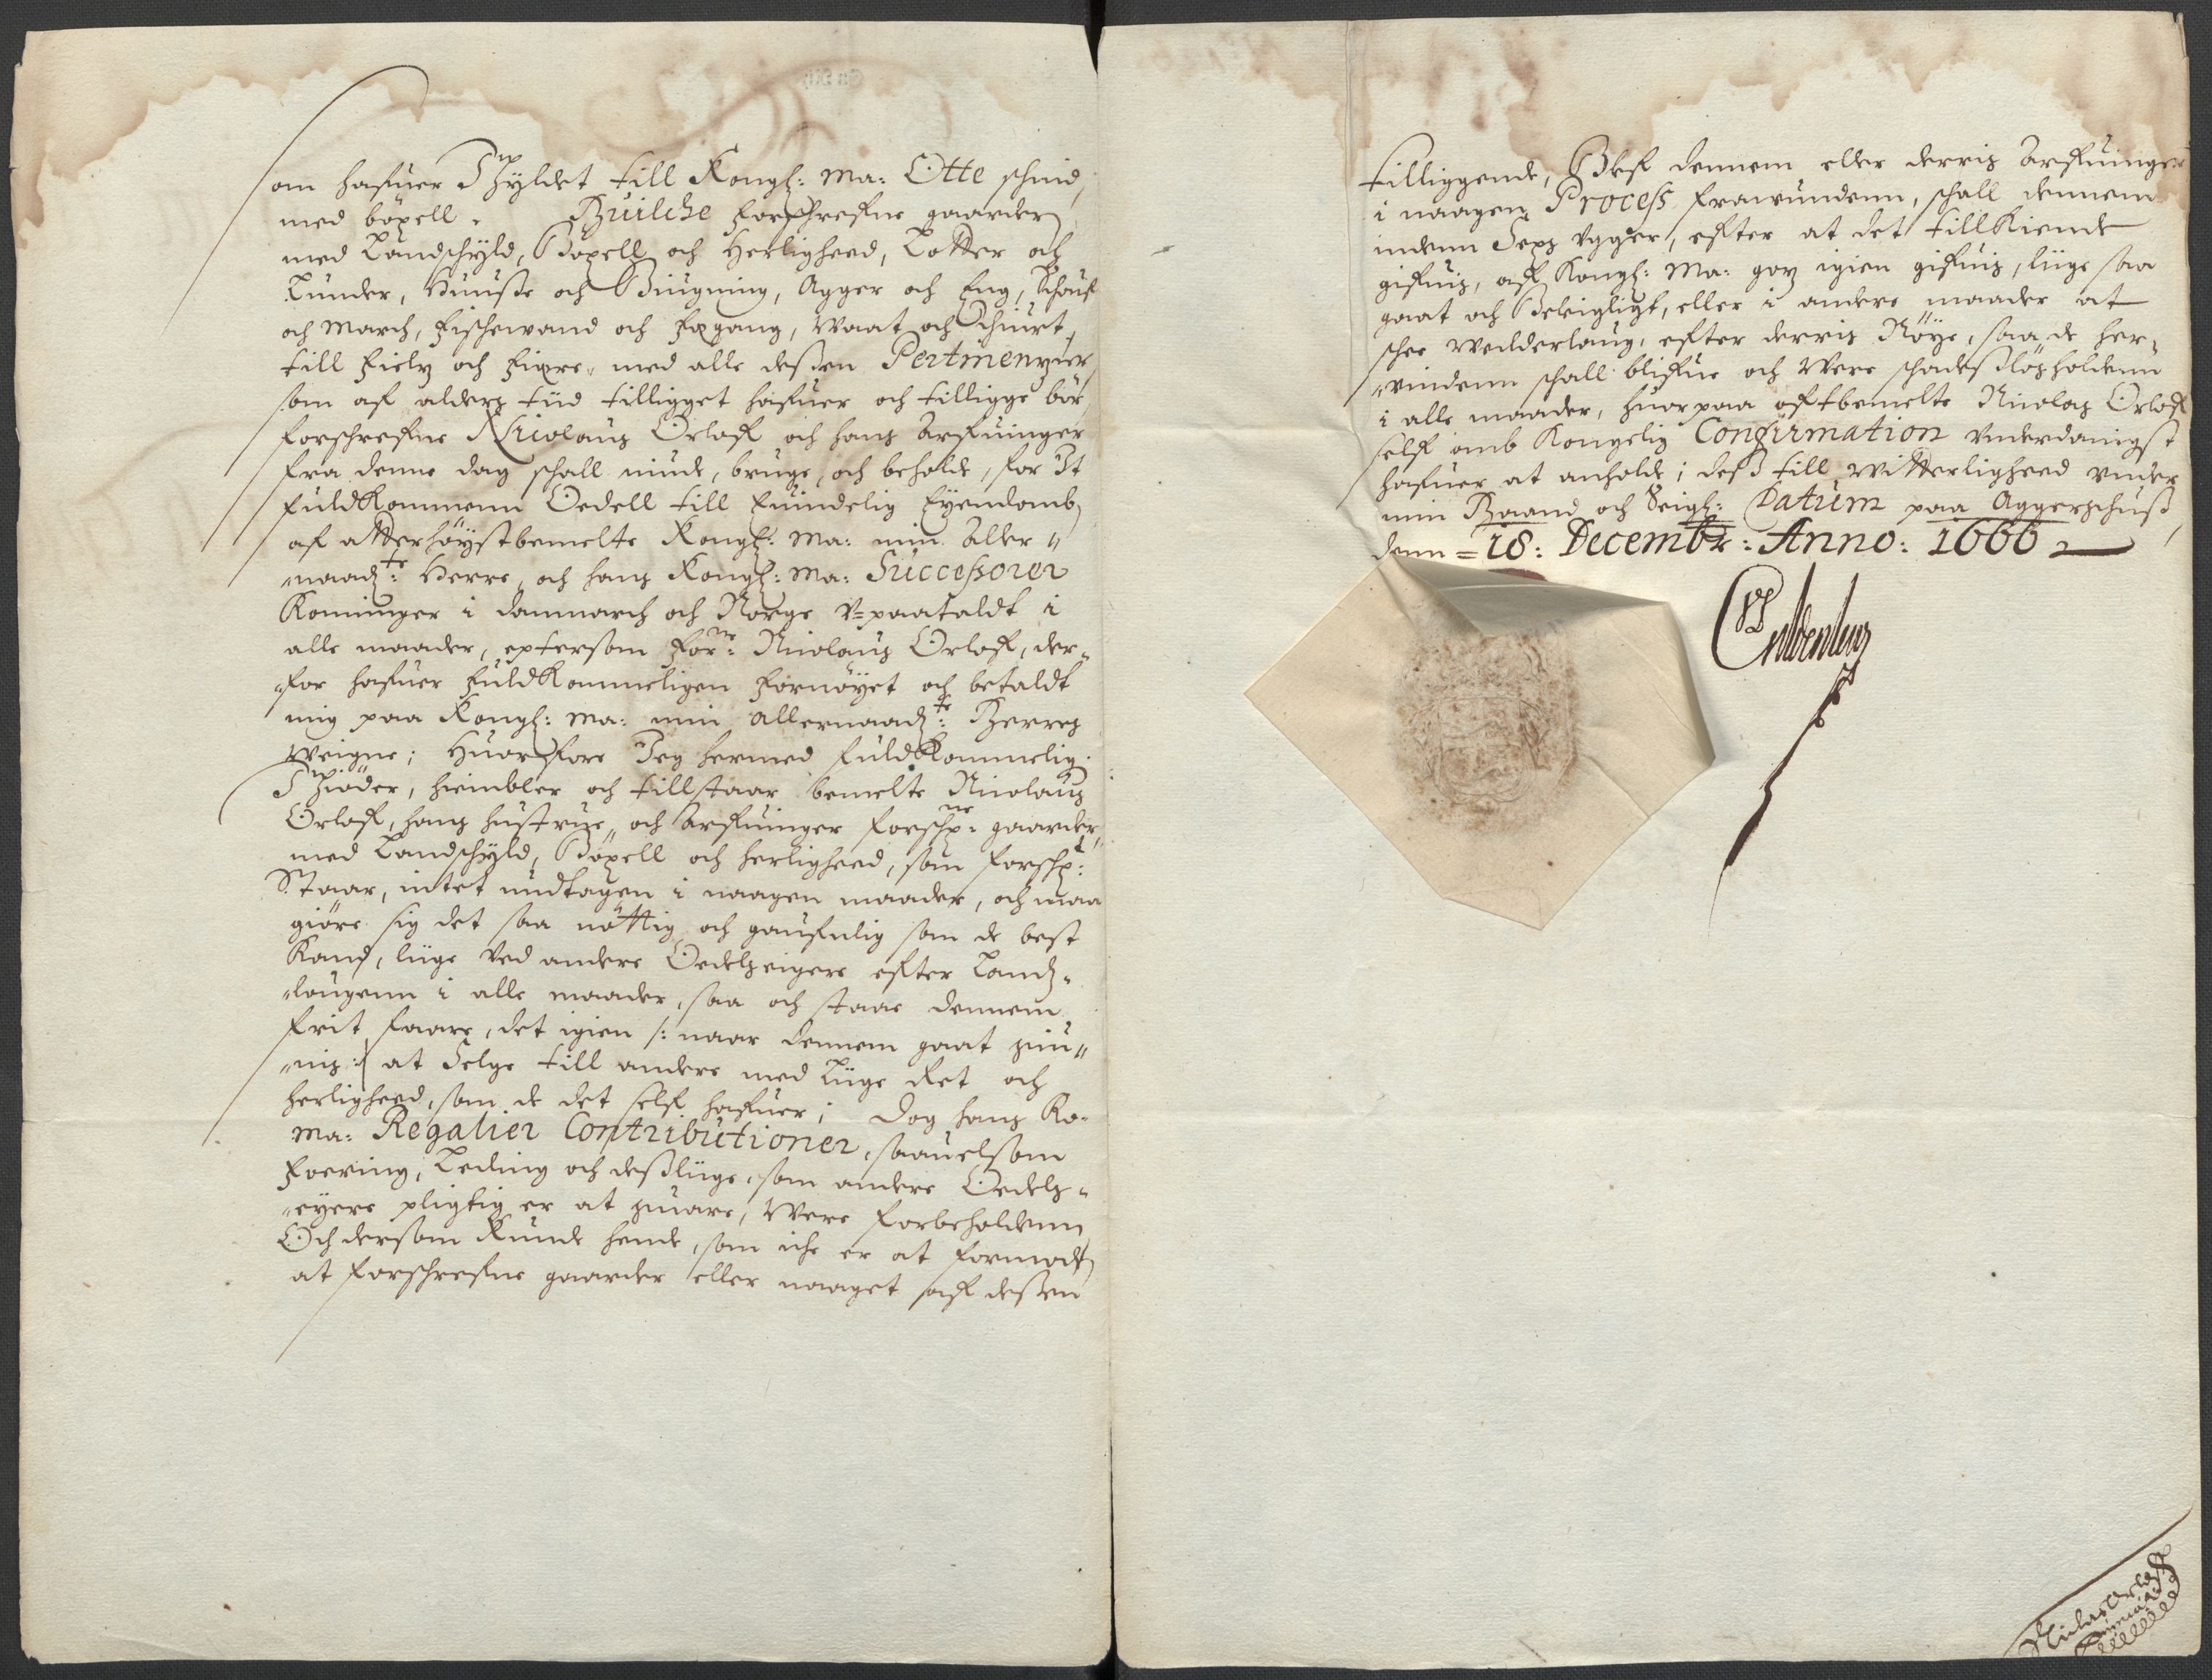 om hafuer Schyldet till Kongl: Ma: Otte schind,
med böxell. Huilche forschrefne gaarder
med Landschyld, Böxell och Herligheed, Lotter och
Lunder, Huuse och Biugning, Agger och Eng, Schouf
och March, Fischewand och Fægang, Waat och Thiurt,
till Fielz och Fiere, med alle dessen Pertinenzier
som af alders tiid tilligget hafuer och tilligge bör
forschrefne Nicolaus Orloff och hans Arfuinger
fra denne dag schall niude, bruge, och beholde, for It
fuldkommenn Oedell till Euindelig Eyendomb,
af atterhöystbemelte Kongl: Ma: min Aller"
"naadste: Herre, och hans Kongl: Ma: Successorer
Koninger i Danmarch och Norge V=paataldt i
alle maader, eptersom forne: Nicolaus Orloff, der"
"for hafuer fuldkommeligen fornöyet och betaldt
mig paa Kongl: Ma: min allernaadste: Herres
weigne; Huorfore Jeg hermed fuldkommelig
Schiöder, hiembler och tillstaar bemelte Nicolaus
Orloff, hans hustrue, och Arfuinger forschne: gaarder,
med Landschyld, Böxell och herligheed, som forschr:
Staar, intet undtagen i naagen maader, och maa
giöre sig det saa nöttig och gaufnlig som de best
Kand, liige ved andre Oedelseigere efter Lands"
"lougenn i alle maader, saa och staar dennem
frit faare, det igien /: naar dennem gaat siu"
"nis :/ at Selge till andre med Liige Ret och
herligheed, som de det self hafuer; Dog hans Ko:
Ma: Regalier Contributioner, saauelsom
Foering, Leding och desliige, som andre Oedels"
"eyere pligtig er at suare, Were forbeholdenn
Och dersom Kunde hende, som iche er at formode
at forschrefne gaarder eller naaget af dessen
tilliggende, Blef dennem eller derris Arfuinger
i naagen Process frawundenn, schall dennem
indenn Sex Ugger, efter at det tillkiende
gifuis, af Kongl: Ma: goz igien gifuis, liige saa
gaat och Beleigligt, eller i andre maader at
schee wedderlaug, efter derris Nöye, saa de her"
"vindenn schall blifue och Were schadeslösholdenn
i alle maader, huorpaa oftbemelte Nicolaus Orloff
self omb Kongelig Confirmation vnderdanigst
hafuer at anholde; Des till witterligheed under
min Haand och Seigl: Datum paa Aggershuus
denn = 18: Decembr: Anno: 1666
Nicolas Orloff